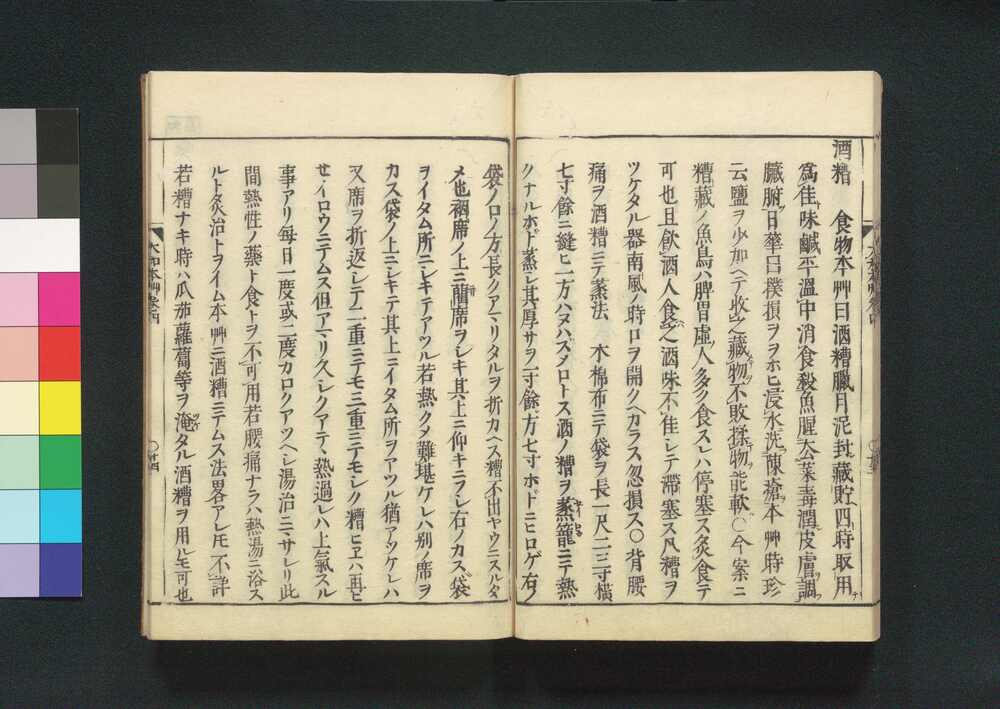 酒糟 食物本艸曰酒糟臘月泥封藏貯四時取用
為佳味鹹平溫中消食殺魚腥去菜毒潤皮膚調
臓腑日華曰撲損ヲヲホヒ浸水洗凍瘡本艸時珍
云鹽ヲ少加ヘテ收之藏物不敗揉物能軟○今案ニ
糟藏ノ魚鳥ハ脾胃虚人多ク食スレハ停塞ス炙食テ
可也且飲酒人食之酒味不佳シテ滯塞ス凡糟ヲ
ツケタル器南風ノ時口ヲ開クヘカラス忽損ス○背腰
痛ヲ酒糟ニテ蒸法 木棉布ニテ袋ヲ長一尺二三寸橫
七寸餘ニ縫ヒ一方ハヌハズメ口トス酒ノ糟ヲ蒸籠ニテ熱
クナルホド蒸シ其厚サヲ一寸餘方七寸ホドニヒロゲ右ノ
袋ノ口ノ方長クアマリタルヲ折カヘス糟不出ヤウニスルタ
メ也裀席ノ上ニ藺席ヲシキ其上ニ仰キニフシ右ノカス袋
ヲイタム所ニシキテアツル若熱クメ難堪ケレハ別ノ席ヲ
カス袋ノ上ニシキテ其上ニイタム所ヲアツル猶アツケレハ
又席ヲ折返シテ二重ニテモ三重ニテモシク糟ヒヱハ再ヒ
せイロウニテムス但アマリ久シクアテ熱過レハ上氣スル
事アリ每日一度或二度カロクアツヘシ湯治ニマサレリ此
間熱性ノ藥ト食トヲ不可用若腰痛ナラハ熱湯ニ浴ス
ルト灸治トヲイム本艸ニ酒糟ニテムス法畧アレモ不詳
若糟ナキ時ハ瓜茄蘿蔔等ヲ淹タル酒糟ヲ用ルモ可也
大和本艸卷四
十四